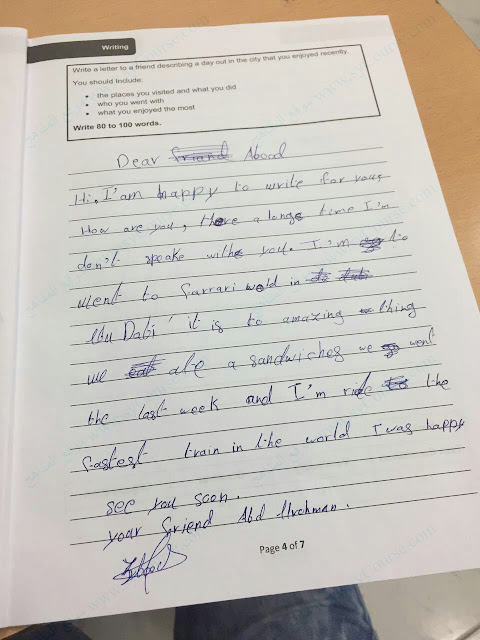 Writing
Write a letter to a friend describing a day out in the city that you enjoyed recently.
You should include:
• the places you visited and what you did
• who you went with
• what you enjoyed the most
Write 80 to 100 words.
Dear friend Abood
Hi, I'am happy to write for you,
How are you, there a long time I'm
don't speake withe you. I'm go to
went to farrari wold in
Abu Dabi' it is to amazing thing
we eat ate a sandwiches we go went
the last week and I'm ride to the
fastest train in the world I was happy
see you soon.
your friend Abd
Page 4 of 7